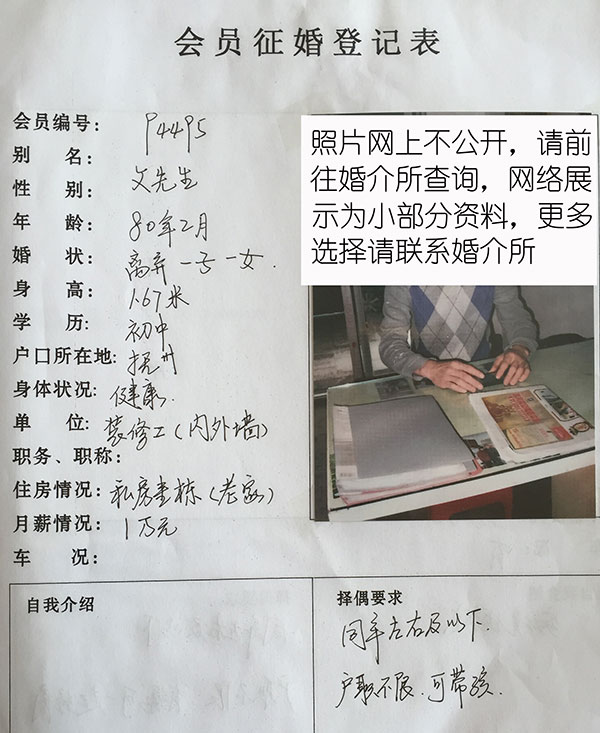 会员征婚登记表
会员编号: P4495
别 名: 文先生
性 别:
年 龄: 80年2月
婚 状: 离异 一子一女.
身 高: 1.67米
学 历: 初中
户口所在地: 抚州
身体状况: 健康.
单 位: 装修工(内外墙)
职务、职称:
住房情况: 私房壹栋(老家)
月薪情况: 1万元
车 况:
照片网上不公开，请前
往婚介所查询，网络展
示为小部分资料，更多
选择请联系婚介所
自我介绍
择偶要求
同年左右及以下.
户职不限.可带孩.